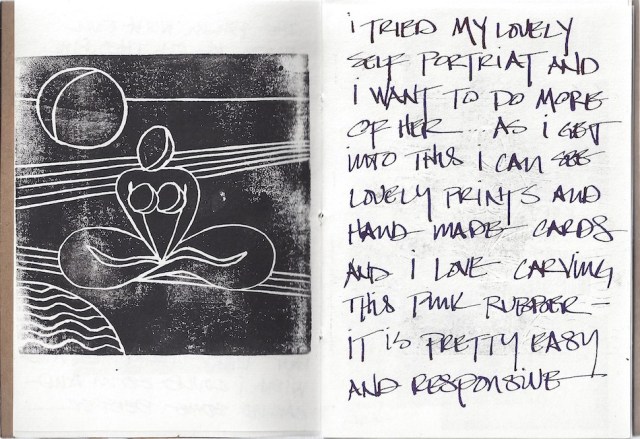 i TRIED MY LOVELY
SELF PORTRIAT AND
i WANT TO DO MORE
OF HER... AS i GET
INTO THIS i CAN SEE
LOVELY PRINTS AND
HAND MADE CARDS
AND i LOVE CARVING
THIS PINK RUBBER -
IT IS PRETTY EASY
AND RESPONSIVE